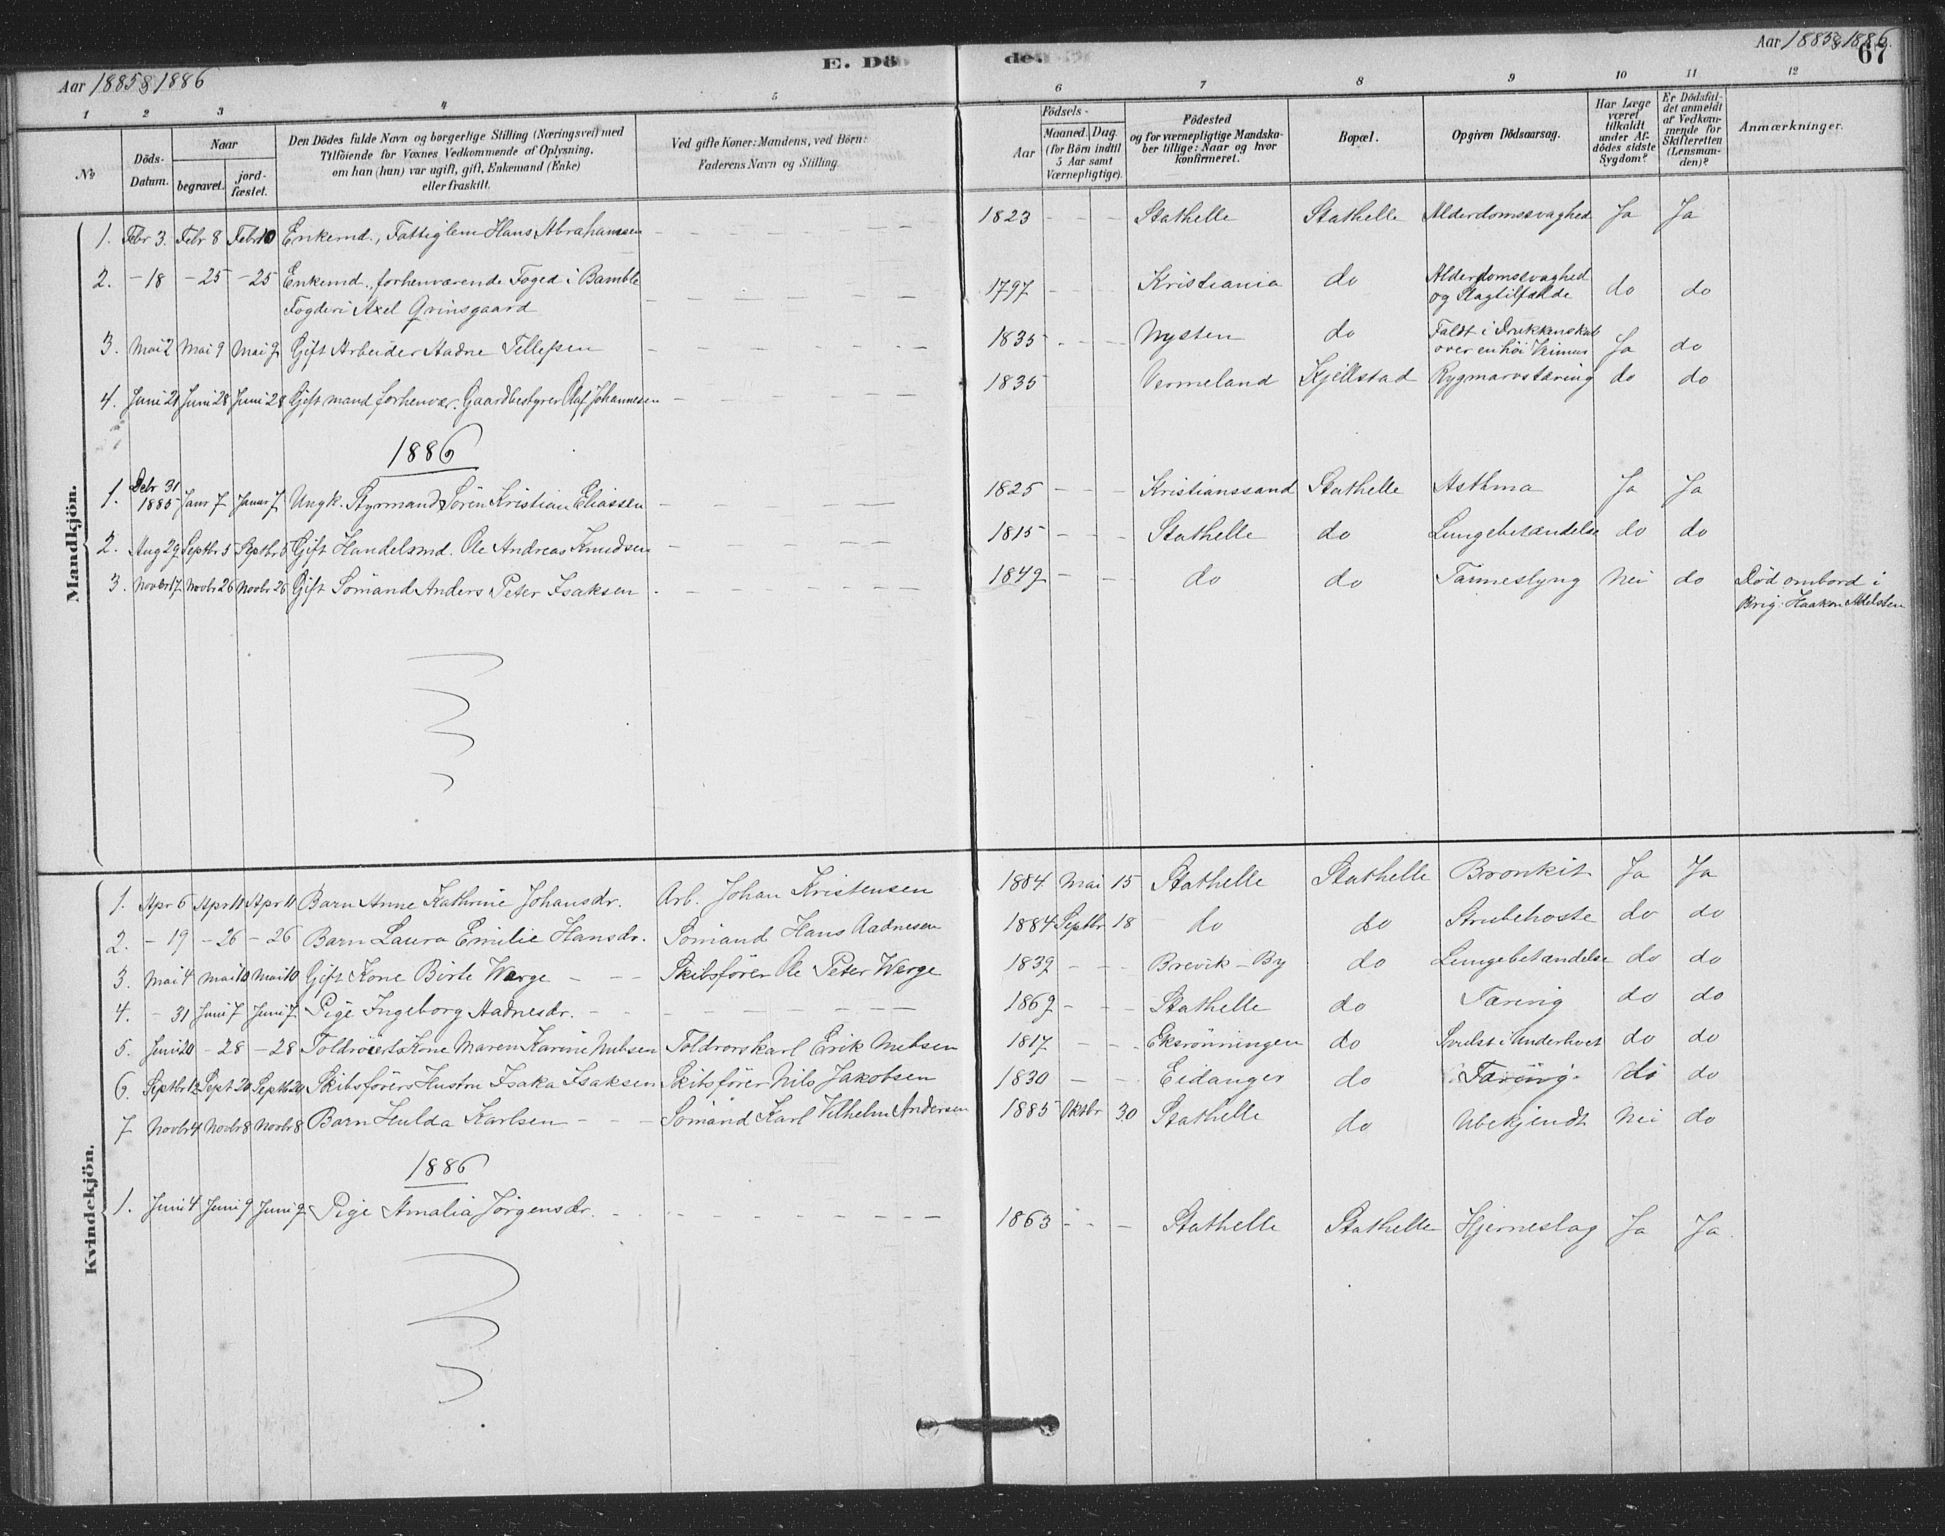 Aar 1885 & 1886
E. Dö
de.
Aar 1885 & 1886.
67
1 2 3 4 5 6 7 8 9 10 11 12
No
Döds-Datum.
Naar
begravet.
jordfæstet.
Den Dödes fulde Navn og borgerlige Stilling (Næringsvei) med
Tilföiende for Voxnes Vedkommende af Oplysning,
om han (hun) var ugift, gift, Enkemand (Enke)
eller fraskilt.
Ved gifte Koner: Mandens, ved Börn:
Faderens Navn og Stilling.
Födsels-
Aar
Maaned. Dag.
(for Börn indtil
5 Aar samt
Værnepligtige).
Födested
og for værnepligtige Mandska-
ber tillige: Naar og hvor
konfirmeret.
Bopæl.
Opgiven Dödsaarsag.
Har Læge
været
tilkaldt
under Af-
dödes sidste
Sygdom?
Er Dödsfal-
det anmeldt
af Vedkom-
mende for
Skifteretten
(Lensman-
den)?
Anmærkninger.
Mandkjön.
1. Febr 3. Febr 8 Febr 10 Enkemd., Fattiglem Hans Abrahamsen 1823 Stathelle Stathelle Alderdomssvaghed Ja Ja
2. - 18 - 25 - 25 Enkemd., forhenværende Foged i Bamble 1797 Kristiania do Alderdomssvaghed do do
Fogderi Axel Qvinsgaard og Slagtilfælde
3. Mai 2 Mai 9 Mai 9 Gift Arbeider Aadne Tellefsen 1835 Nysten do Faldt i Drukkenskab Ja do
over en høi Veimur
4. Juni 21 Juni 28 Juni 28 Gift mand forhenvær. Gaardbestyrer Olaf Johannesen 1835 Vermeland Kjellstad Rygmarvstæring do do
1886
1. Debr 31 1885 Janr 7 Januar 7 Ungk. Styrmand Sören Kristian Eliassen 1825 Kristianssand Stathelle Asthma Ja Ja
2. Aug 29 Septbr 5 Septbr 5 Gift Handelsmd. Ole Andreas Knudsen 1815 Stathelle do Lungebetændelse do do
3. Novbr 17 Novbr 26 Novbr 26 Gift Sömand Anders Peter Isaksen 1849 do do Tarmeslyng Nei do Død ombord i
Brig. Haakon Adelsten
Kvindekjön.
1. Apr 6 Apr 11 Apr 11 Barn Anne Kathrine Johansdr. Arb. Johan Kristensen 1884 Mai 15 Stathelle Stathelle Bronkit Ja Ja
2. - 19 - 26 - 26 Barn Laura Emilie Hansdr. Sömand Hans Aadnesen 1884 Septbr 18 do do Strubehoste do do
3. Mai 4 Mai 10 Mai 10 Gift Kone Birte Werge Skibsförer Ole Peter Werge 1839 Brevik - By do Lungebetændelse do do
4. - 31 Juni 7 Juni 7 Pige Ingeborg Aadnesdr. 1869 Stathelle do Tæring do do
5. Juni 20 - 28 - 28 Toldroiets Kone Maren Karine Nilsen Toldrorskarl Erik Nilsen 1817 Eksrönningen do Svulst i Underlivet do do
6. Septbr 12 Sept 20 Septbr 20 Skibsförers Hustru Isaka Isaksen Skibsförer Nils Jakobsen 1830 Eidanger do Tæring do do
7 Novbr 4 Novbr 8 Novbr 8 Barn Hulda Karlsen Sömand Karl Vilhelm Andersen 1885 Oktbr 30 Stathelle do Ubekjendt Nei do
1886
1. Juni 4 Juni 9 Juni 9 Pige Amalia Jörgensdr. 1863 Stathelle Stathelle Hjerneslag Ja Ja.